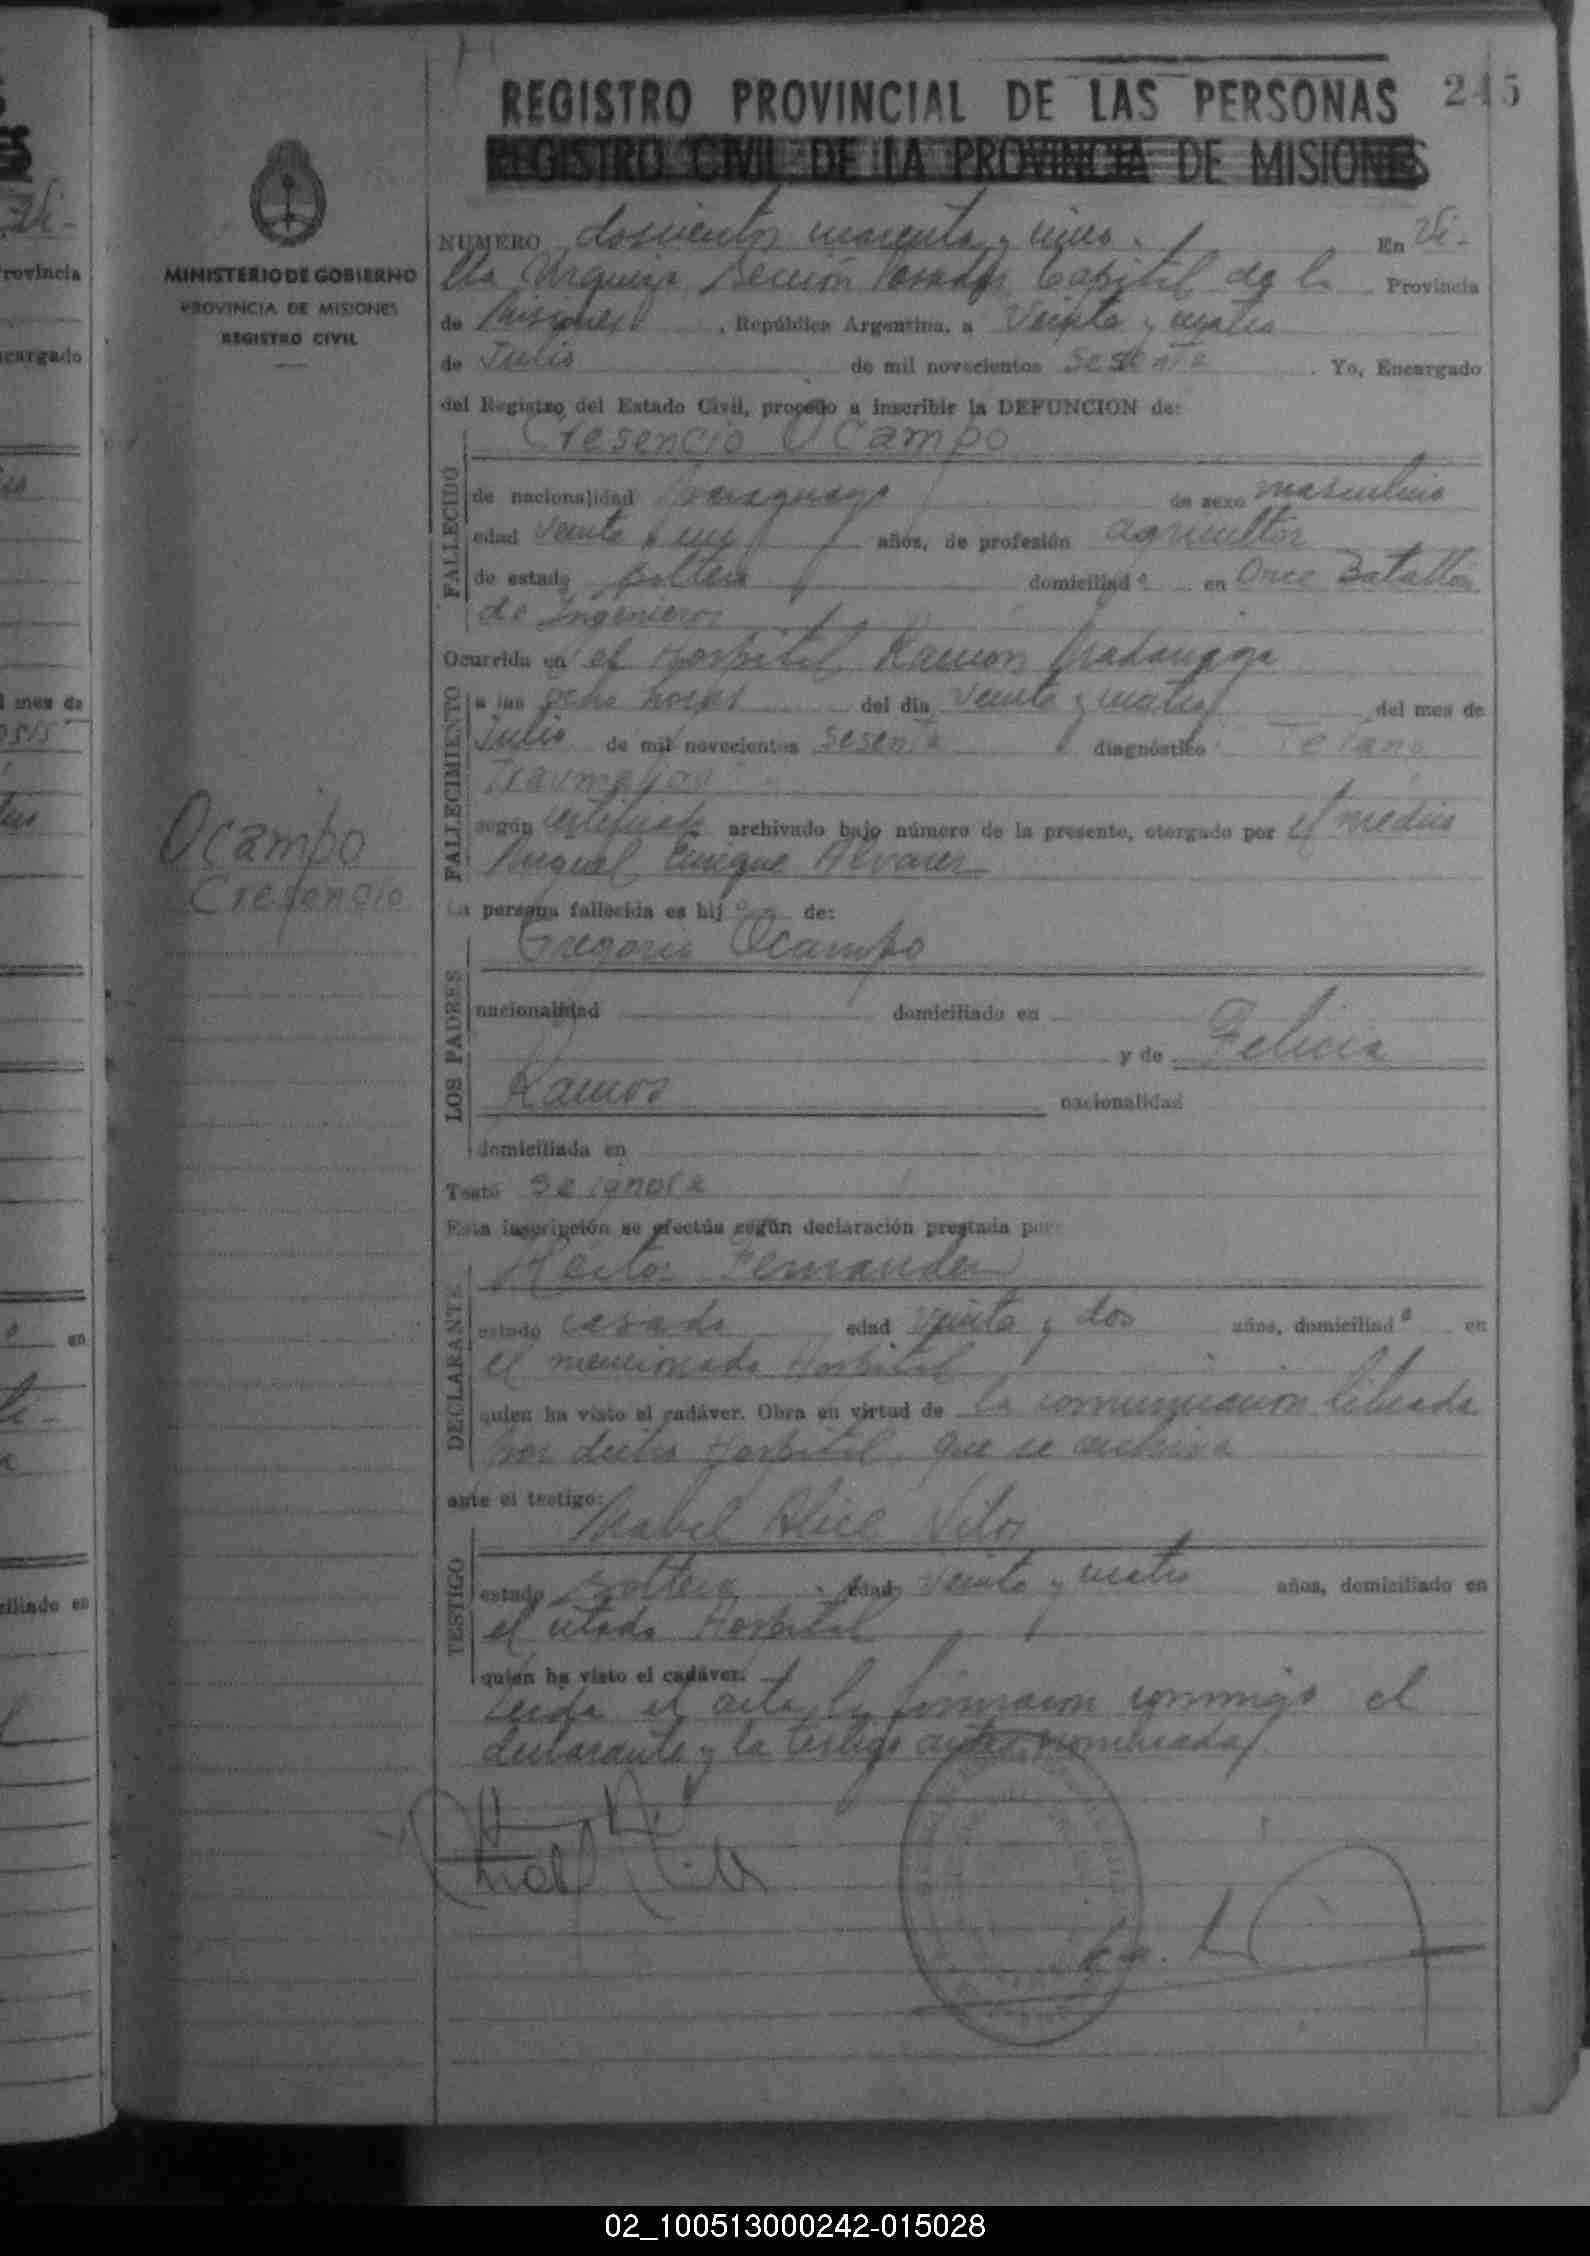 REGISTRO PROVINCIAL DE LAS PERSONAS 245
REGISTRO CIVIL DE LA PROVINCIA DE MISIONES
MINISTERIO DE GOBIERNO
PROVINCIA DE MISIONES
REGISTRO CIVIL
NUMERO doscientos cuarenta y cinco. En Vi-
lla Urquiza Sección Posadas Capital de la Provincia
de Misiones, República Argentina, a Veinte y cuatro
de Julio de mil novecientos Sesenta. Yo, Encargado
del Registro del Estado Civil, procedo a inscribir la DEFUNCION de:
Cresencio Ocampo
FALLECIDO
de nacionalidad Paraguayo de sexo masculino
edad Veinte y un años, de profesión agricultor
de estado soltero domiciliado en Once Batallón
de Ingenieros
Ocurrida en el Hospital Ramon Madariaga
FALLECIMIENTO
a las ocho horas del día Veinte y cuatro del mes de
Julio de mil novecientos Sesenta diagnóstico Tetano
Traumatico
según certificado archivado bajo número de la presente, otorgado por el medico
Miguel Enrique Alvarez
Ocampo
Cresencio
La persona fallecida es hijo de:
LOS PADRES
Gregorio Ocampo
nacionalidad domiciliado en
y de Felicia
Ramos nacionalidad
domiciliada en
Testó Se ignora
Esta inscripción se efectúa según declaración prestada por:
DECLARANTE
Héctor Fernandez
estado casado edad Veinte y dos años, domiciliado en
el mencionado Hospital
quien ha visto el cadáver. Obra en virtud de la comunicacion librada
por dicho Hospital que se archiva
ante el testigo:
TESTIGO
Mabel Alice
estado soltera edad Veinte y cuatro años, domiciliado en
el citado Hospital
quien ha visto el cadáver.
Leida el acta la firmaron conmigo el
declarante y la testigo antes nombrada
02_100513000242-015028